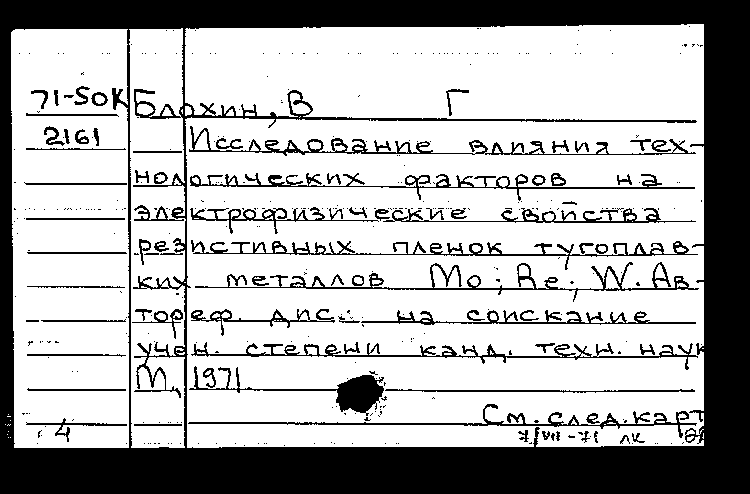 71-50К Блохин, В Г
2161 Исследование влияния тех-
нологических факторов на
электрофизические свойства
резистивных пленок тугоплав-
ких металлов Mo; Re; W. Ав-
тореф. дис. на соискание
учен. степени канд. техн. наук
М., 1971.
См. след. карт
4 7/VII-71 лк